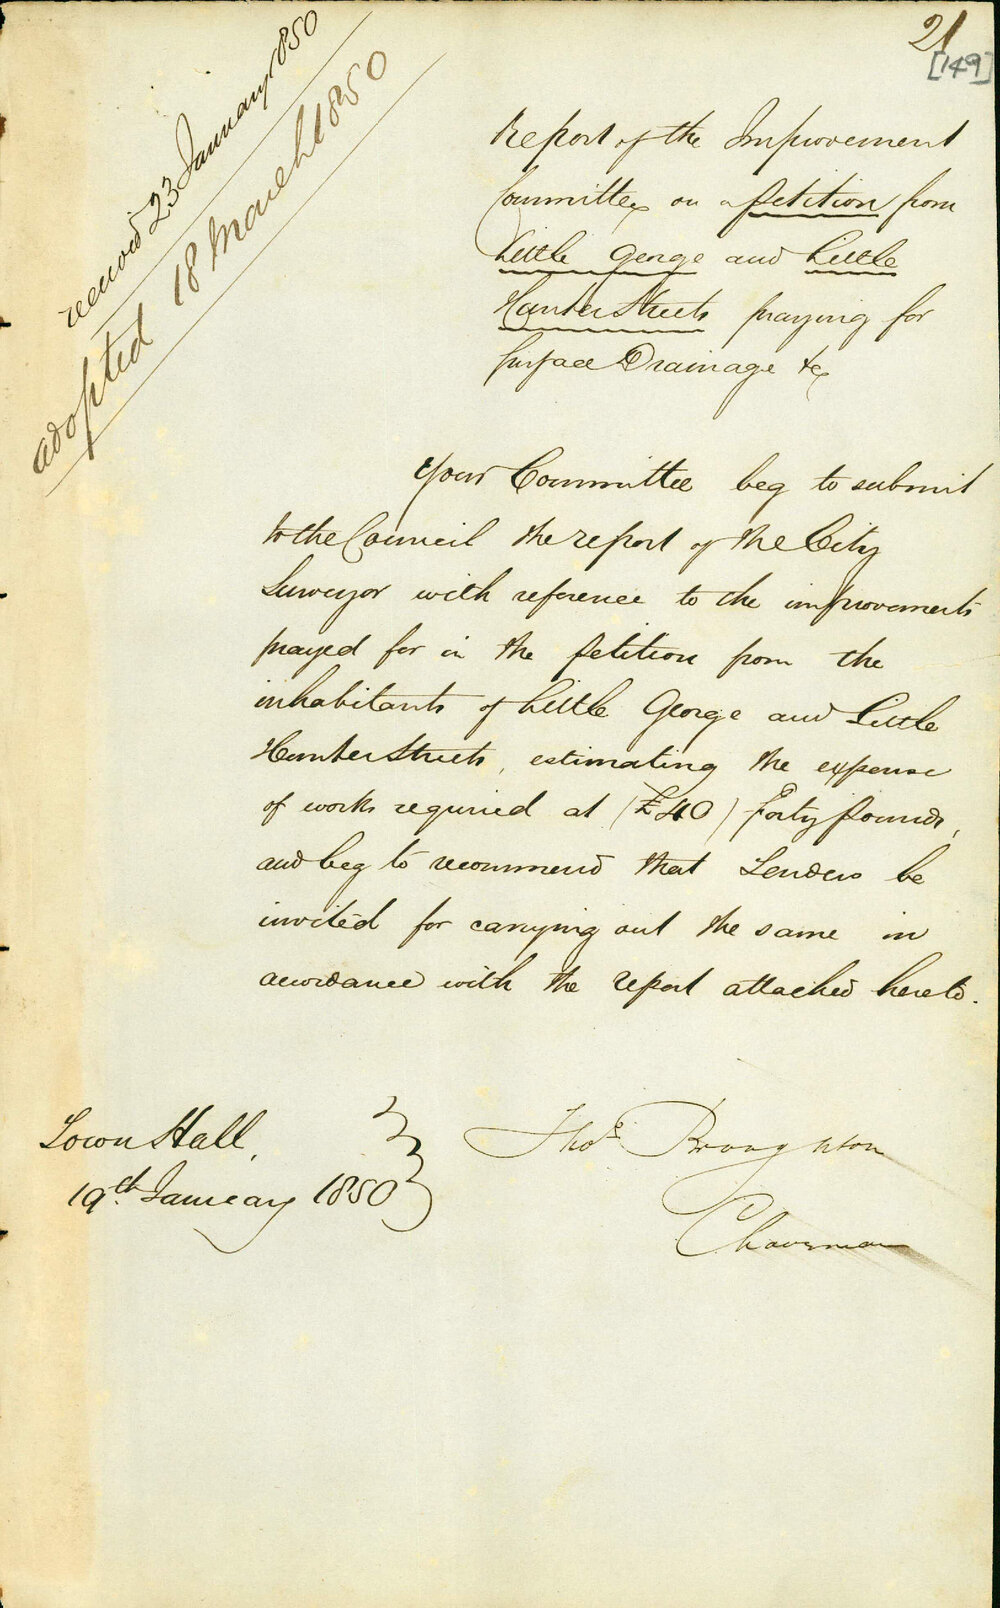 21
[149]
received 23 January 1850
adopted 18 March 1850
Report of the Improvement
Committee on a petition from
Little George and Little
Hunter Streets praying for
Surface Drainage &c
Your Committee beg to submit
to the Council the report of the City
Surveyor with reference to the improvements
prayed for in the petition from the
inhabitants of Little George and Little
Hunter Streets, estimating the expense
of works required at (£40) forty pounds,
and beg to recommend that Tenders be
invited for carrying out the same in
accordance with the report attached hereto.
Town Hall,
19th January 1850
Thos. Broughton
Chairman